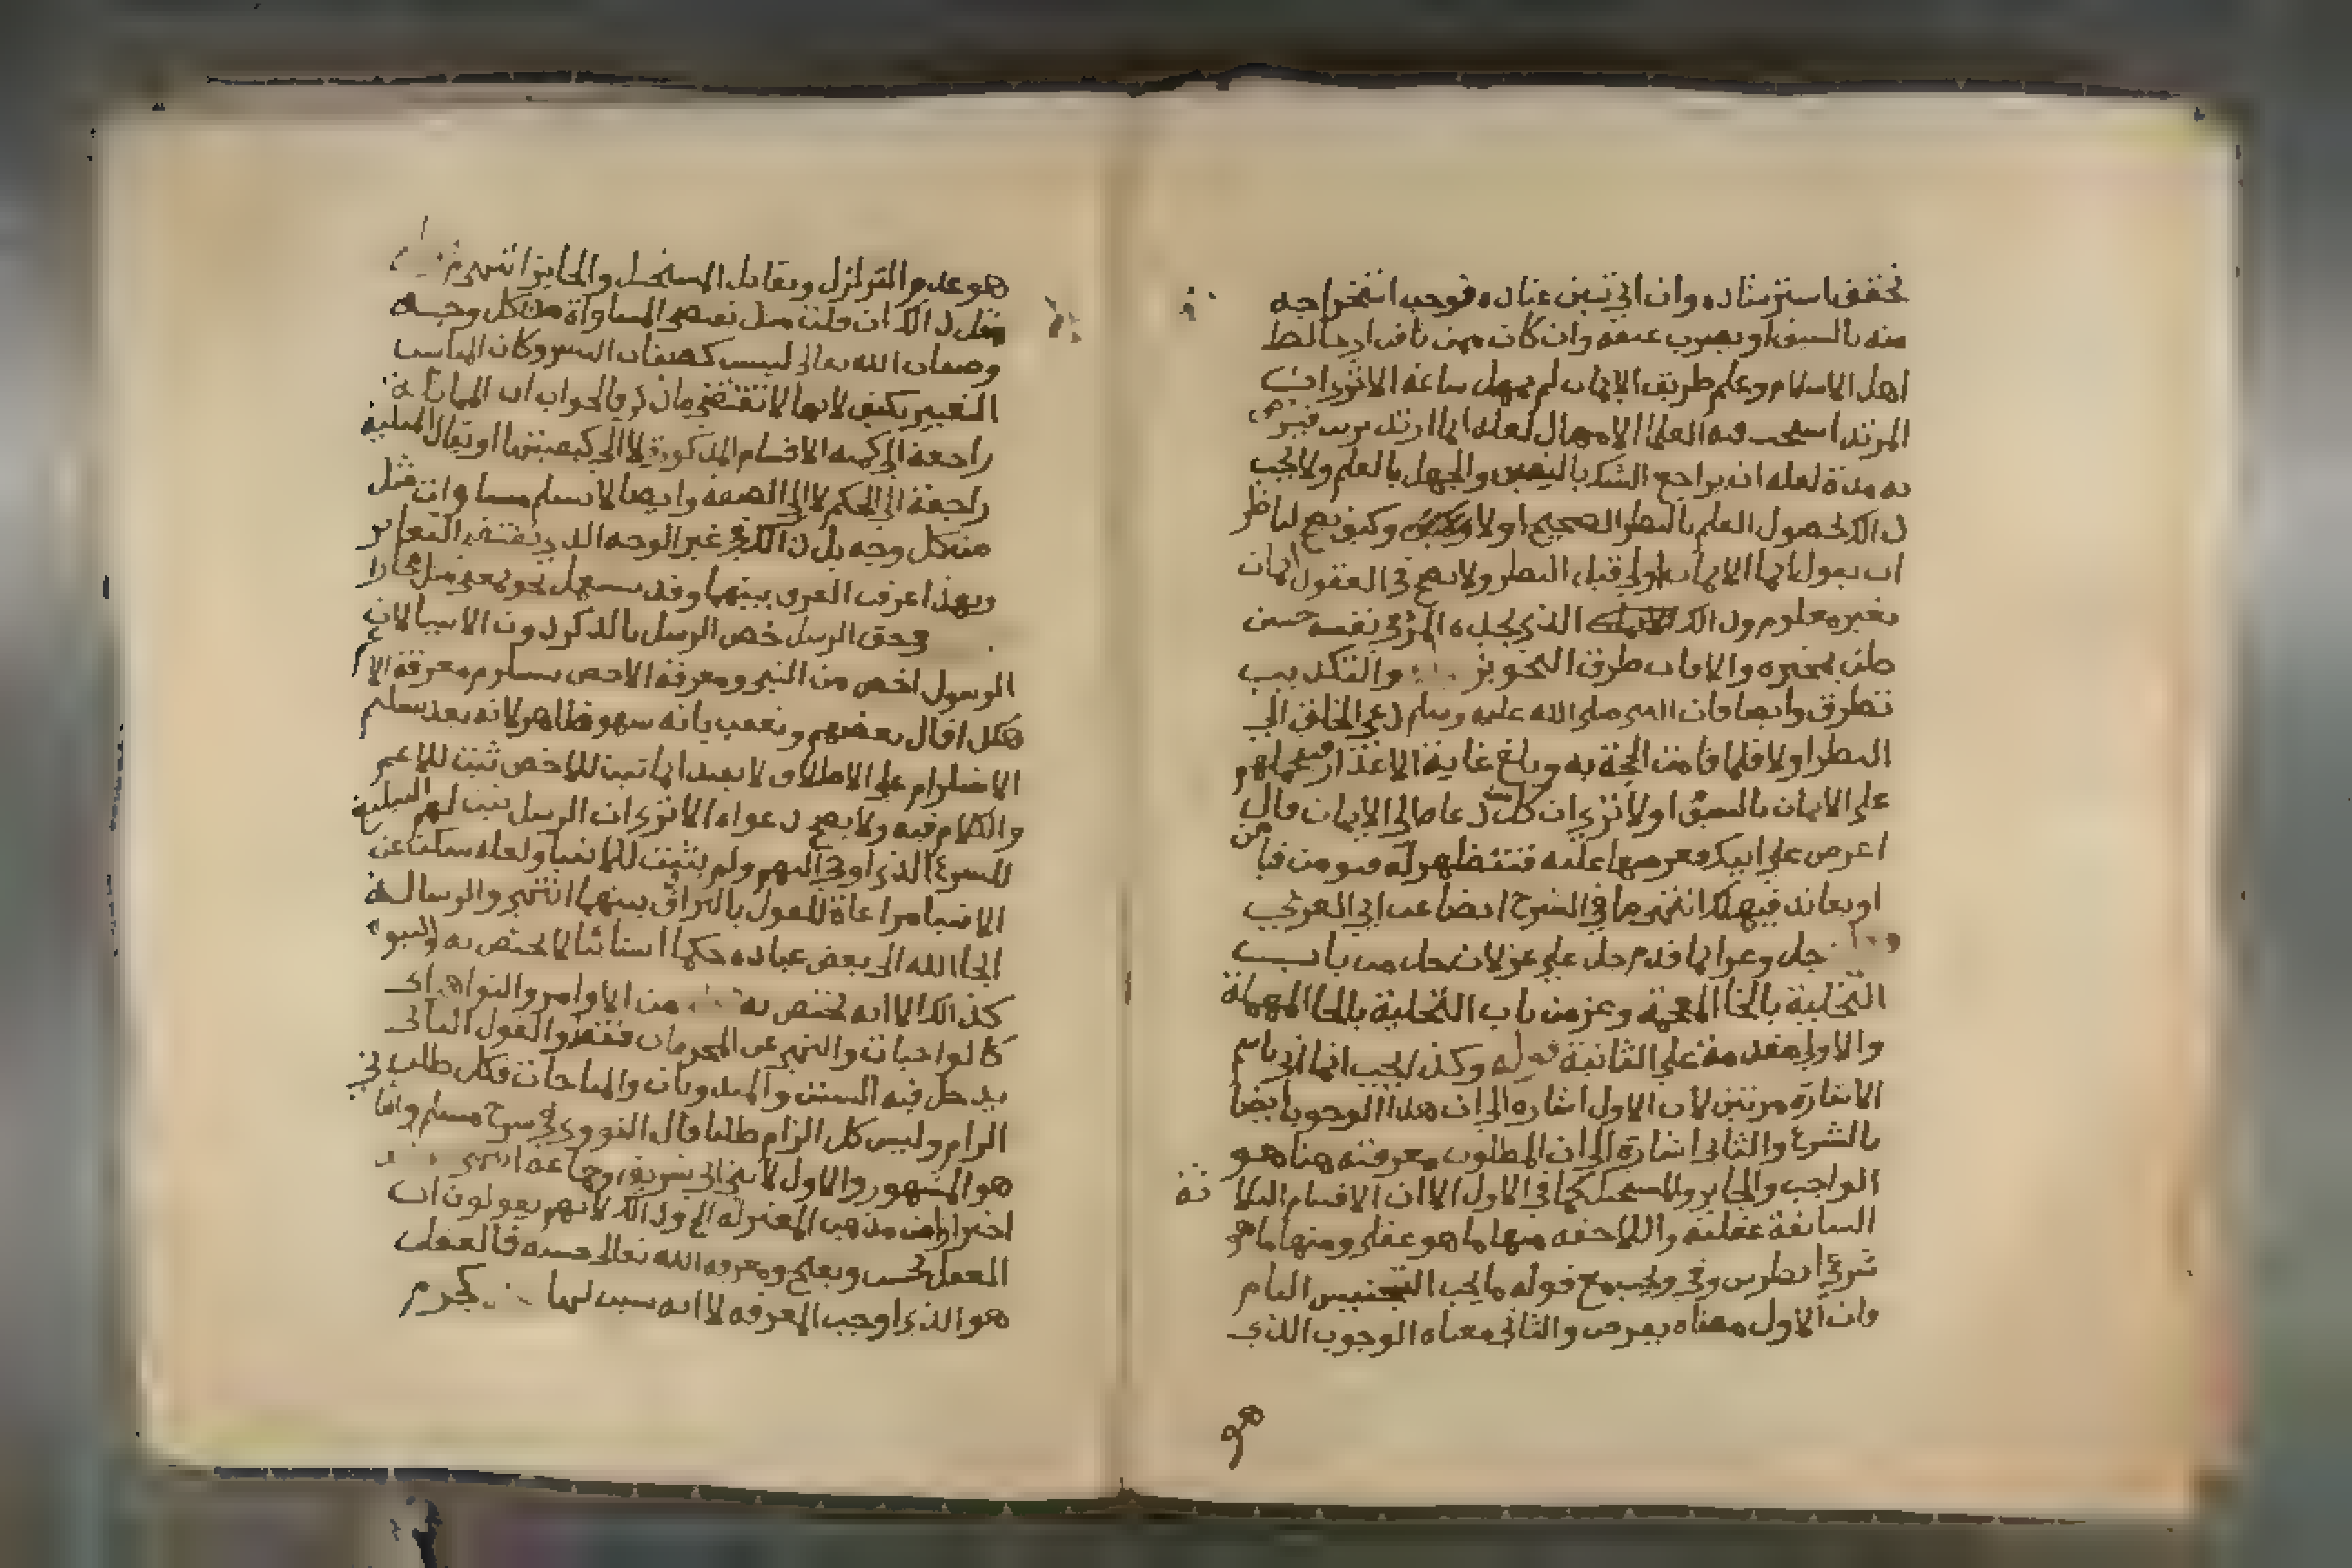 تحقق استرشاده وان ابى تبين عناده فوجب استخراجه
منه بالسيف او يضرب عنقه وان كان ممن ثافن اوخالط
اهل الاسلام وعلم طريق الايمان لم يمهل ساعة الا ترى ان
المرتد استحب فيه العلما الامهال لعله انما ارتد بريب فيتربص
به مدة لعله ان يراجع الشك باليقين والجهل بالعلم ولا يجب
ذالك لحصول العلم بالنظر الصحيح اولا وكيف يصح لناظر
ان يقول انما الايمان اولي قبل النظر ولا يصح في العقول ايمان
بغير معلوم وذالك الذي يجده المرء في نفسه حسن
ظن بمخبره والا فان طرق التجويز والتكذيب
تطرق وايضا فان النبي صلى الله عليه وسلم دعى الخلق الى
النظر اولا فلما قامت الحجة به وبلغ غاية الاعذار حملهم
على الايمان بالسيف اولا ترى ان كل من دعاه الى الايمان قال
اعرض علي ايتك فيعرضها عليه فتظهر له فيومن فيامن
او يعاند فيهلك انتهى ما في الشرح ايضا عن ابن العربي
جل وعز انما قدم جل على عز لان جل من باب
التخلية بالخا المعجمة وعز من باب التحلية بالحا المهملة
والاولى مقدمة على الثانية قوله وكذا يجب انما اتى باسم
الاشارة مرتين لان الاول اشاره الى ان هذا الوجوب ايضا
بالشرع والثاني اشارة الى ان المطلوب معرفته هنا هو
الواجب والجايز والمستحيل كما في الاول الا ان الاقسام الثلاثة
السابقة عقلية واللاحقه منها ما هو عقلي ومنها ما هو
شرعي انظر س وفي ويجب مع قوله ما يجب التجنيس التام
فان الاول معناه يفرض والثاني معناه الوجوب الذي
هو
هو عدم التزلزل ويقابل المستحيل والجايز انتهى
مثل ذالك ان قلت مثل تقتضى المساواة من كل وجه
وصفات الله تعالى ليست كصفات البشر وكان المناسب
التعبير بكيف لانها لا تقتضي ما ذكر فالجواب ان المماثلة
راجعة الى كمية الاقسام المذكورة لا الى كيفيتها او يقال المثلية
راجعة الى الحكم لا الى الصفة وايضا لا نسلم مساوات مثل
من كل وجه بل ذالك في غير الوجه الذي يقتضى التغاير
وبهذا عرف الفرق بينهما وقد يستعمل نحو بمعنى مثل مجازا
في حق الرسل خص الرسل بالذكر دون الانبيا لان
الرسول اخص من النبي ومعرفة الاخص يستلزم معرفة الاعم
هكذا قال بعضهم وتعقب بانه سهو ظاهر لانه بعد تسليم
الاستلزام على الاطلاق لا يفيد انما ثبت للاخص ثبت للاعم
والكلام فيه ولا يصح دعواه الا ترى ان الرسل ثبت لهم التبليغ
للشرع الذي اوحي اليهم ولم يثبت للانبيا ولعله سكت عن
الانبيا مراعاة للقول بالترادف بينهما انتهى والرسالة
ايحا الله الى بعض عباده حكما انشائيا لا يختص به والنبوة
كذالك الا انه يختص به من الاوامر والنواهى اى
كالواجبات والنهي عن المحرمات فقط والقول الثانى
يدخل فيه السنن والمندوبات والمباحات فكل طلب في
الزام وليس كل الزام طلبا قال النووي في شرح مسلم والثا
هو المشهور والاول لابن ابي شريف وجماعة انتهى
احترازا من مذهب المعتزلة الخ وذالك لانهم يقولون ان
العقل يحسن ويقبح ومعرفه الله تعالى حسنه فالعقل
هو الذي اوجب المعرفه لا انه سبب لها